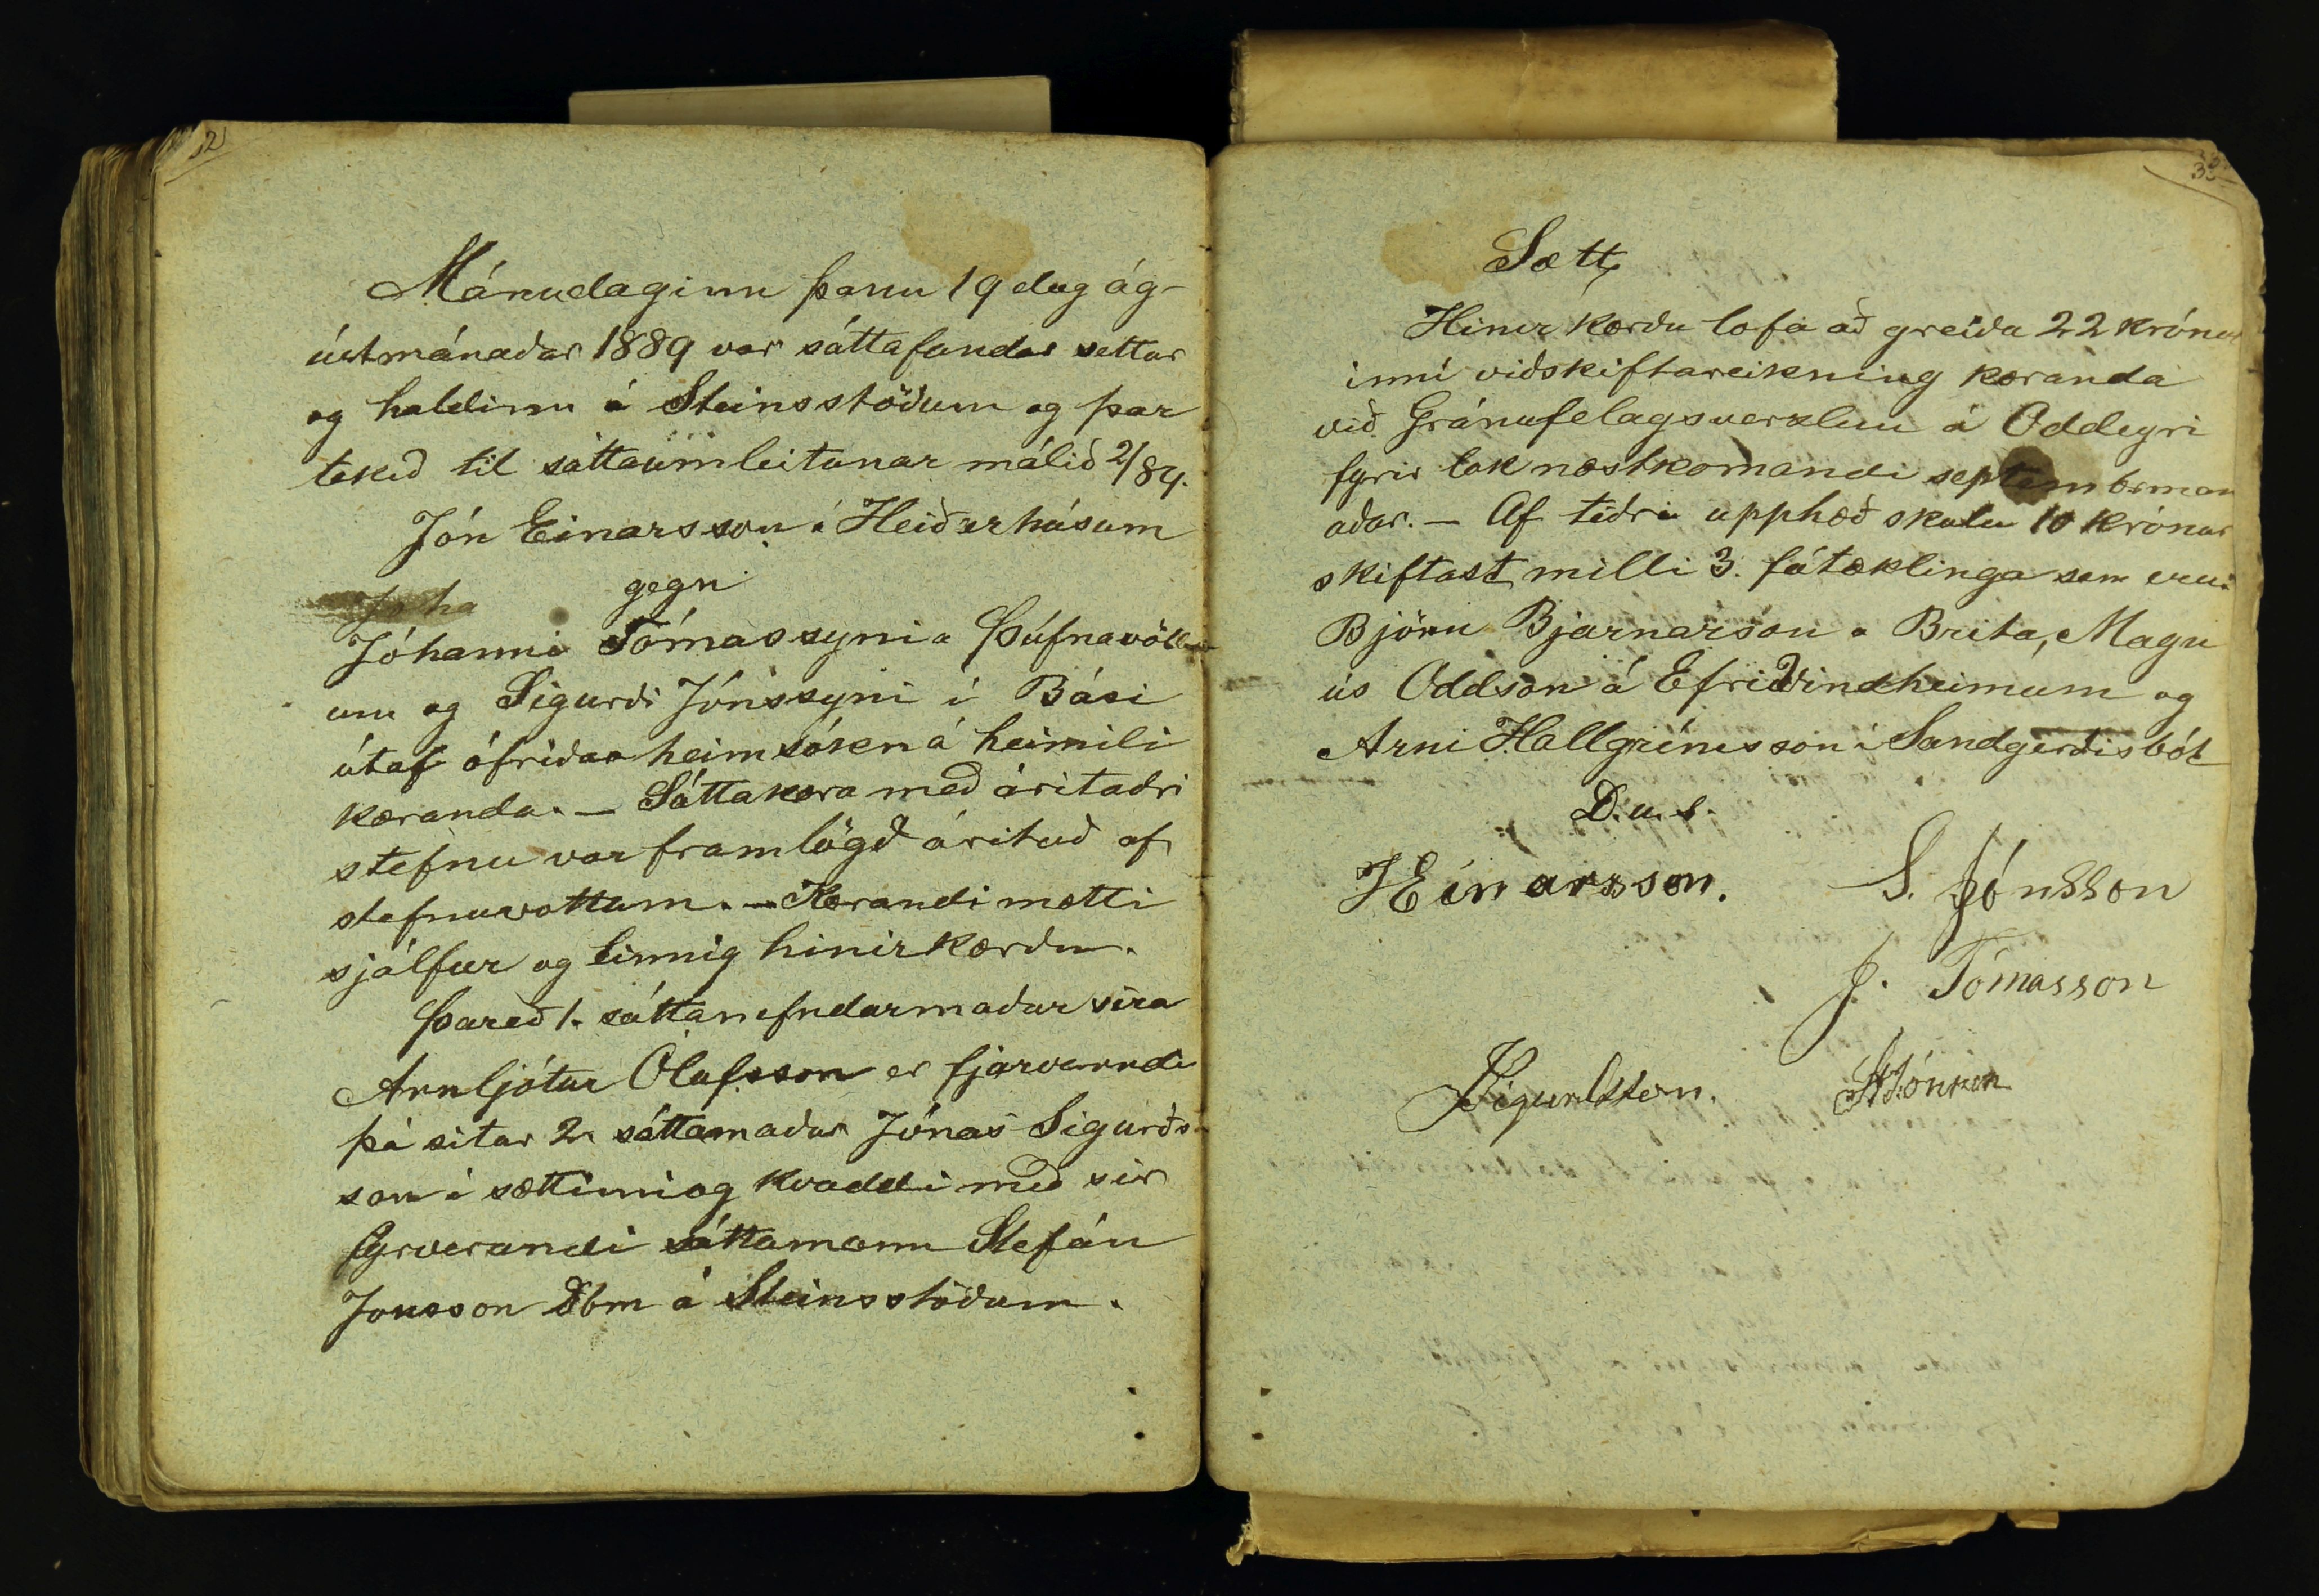 32
Mánudaginn þann 19 dag ág-
ústmánaðar 1889 var sáttafundur settur
og haldinn á Steinsstöðum og þar
tekið til sáttaumleitunar málið 2/89.
Jón Einarsson í Heiðarhúsum
gegn
Joha
Jóhanni Tómassyni a Þúfnavöll-
um og Sigurði Jónssyni í Bási
útaf ófriðar heimsókn á heimili
kæranda. — Sáttakæra með áritaðri
stefnu var framlögð árituð af
stefnuvottum. — Kærandi mætti
sjálfur og einnig hinir kærðu.
Þareð 1. sáttanefndarmaður síra
Arnljótur Ólafsson er fjærverandi
þá situr 2. sáttamaður Jónas Sigurðs-
son í sættinni og kvaddi með sér
fyrverandi sáttamann Stefán
Jonsson Dbm á Steinsstöðum.
33
Sætt,
Hinir kærðu lofa að greiða 22 krónur
inní viðskiftareikning kæranda
við Gránufelagsverzlun á Oddeyri
fyrir lok næstkomandi septembrmán
aðar. — Af téðri upphæð skulu 10 krónur
skiftast milli 3. fátæklinga sem eru:
Björn Bjarnarson a Brita, Magn
ús Oddson á Efri Vindheimum og
Arni Hallgrímsson í Sandgerðisbót
D. u. s.
JEinarsson. S. Jónsson
J. Tómasson
JSigurdsson. StJónsson